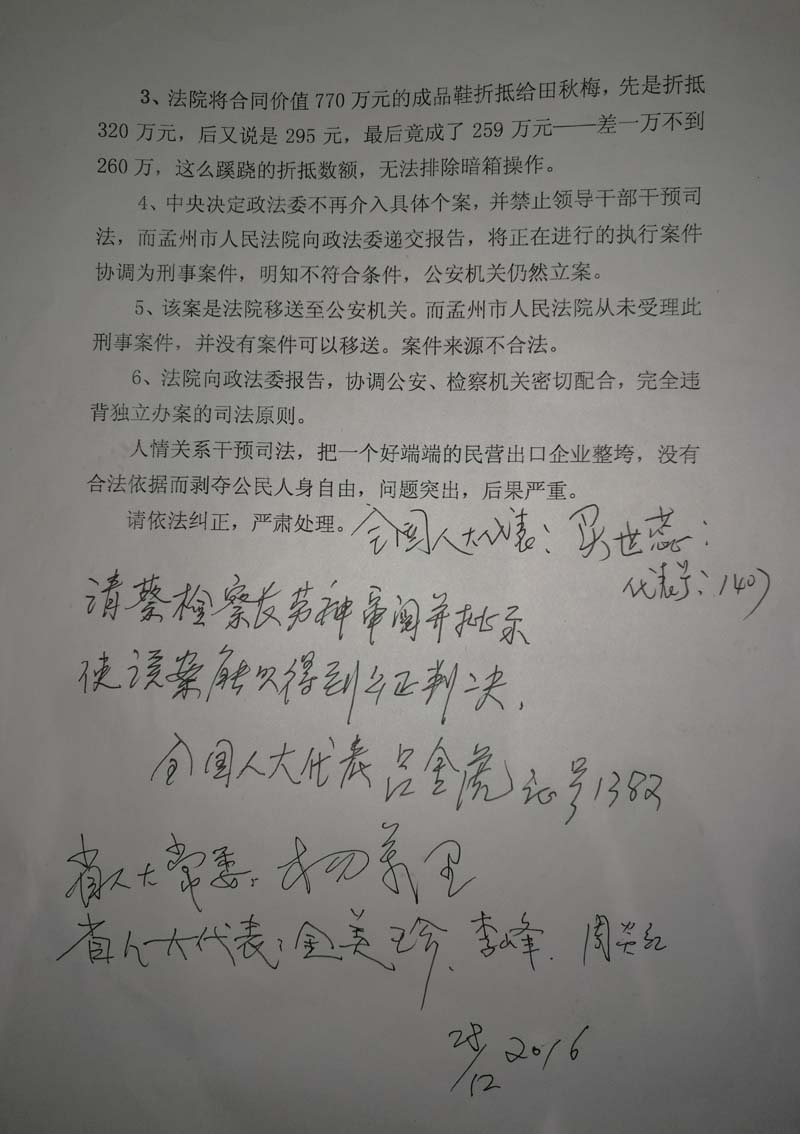 3、法院将合同价值 770 万元的成品鞋折抵给田秋梅，先是折抵
320 万元，后又说是 295 元，最后竟成了 259 万元——差一万不到
260 万，这么蹊跷的折抵数额，无法排除暗箱操作。
4、中央决定政法委不再介入具体个案，并禁止领导干部干预司
法，而孟州市人民法院向政法委递交报告，将正在进行的执行案件
协调为刑事案件，明知不符合条件，公安机关仍然立案。
5、该案是法院移送至公安机关。而孟州市人民法院从未受理此
刑事案件，并没有案件可以移送。案件来源不合法。
6、法院向政法委报告，协调公安、检察机关密切配合，完全违
背独立办案的司法原则。
人情关系干预司法，把一个好端端的民营出口企业整垮，没有
合法依据而剥夺公民人身自由，问题突出，后果严重。
请依法纠正，严肃处理。
全国人大代表：买世蕊：
代表号：1407
请蔡检察长劳神审阅并批示
使该案能够得到公正判决，
全国人大代表 吕金虎 证号1382
省人大常委：杨万里
省人大代表：金美珍、李峰、周炎红
28/12 2016